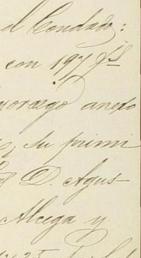 el Condado:
con 197
yorazgo anexo
su primi
D. Agus-
Alciga y